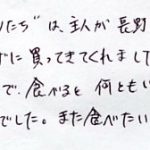 りたち〟は、主人が長野
に買ってきてくれまし
で、食べると何ともい
でした。また食べたい